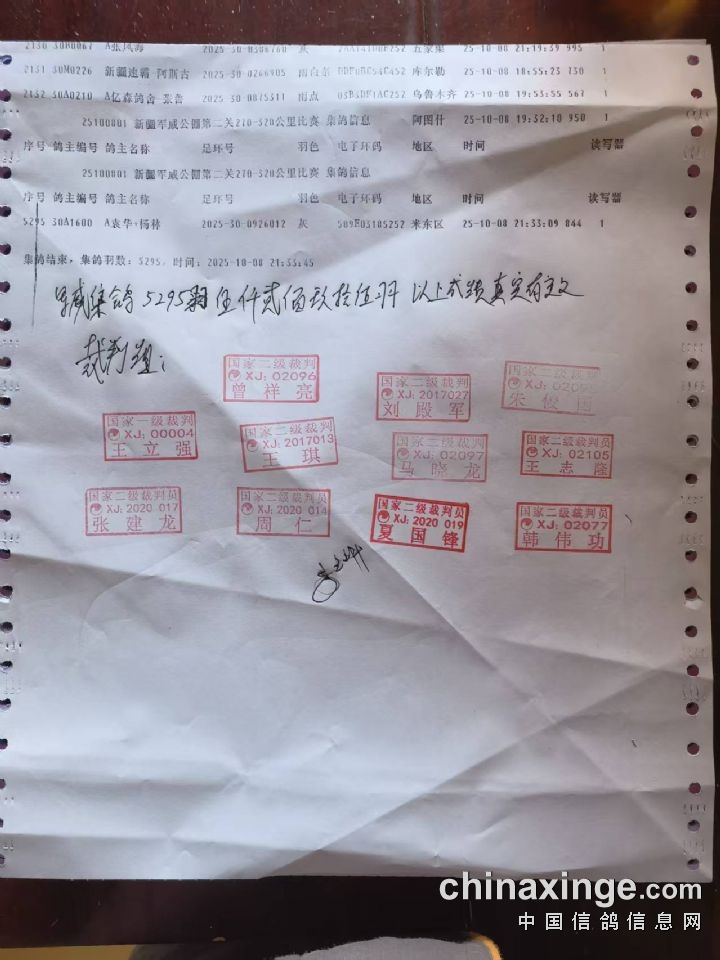 2130 30B0067 A张凤海 2025-30-0308760 灰 五家渠 25-10-08 21:19:39 995 1
2131 30M0226 新疆速霸-阿斯古 2025-30-0266905 雨白条 库尔勒 25-10-08 18:55:23 730 1
2132 30A0210 A亿森鸽舍-张普 2025-30-0875311 雨点 03B3DF1AC252 乌鲁木齐 25-10-08 19:53:55 567 1
25100801 新疆军威公棚第二关270-320公里比赛 集鸽信息 阿图什 25-10-08 19:32:10 950 1
序号 鸽主编号 鸽主名称 足环号 羽色 电子环码 地区 时间 读写器
25100801 新疆军威公棚第二关270-320公里比赛 集鸽信息
序号 鸽主编号 鸽主名称 足环号 羽色 电子环码 地区 时间 读写器
5295 30A1600 A袁华+杨林 2025-30-0926012 灰 509E03105252 米东区 25-10-08 21:33:09 844 1
集鸽结束, 集鸽羽数: 5295, 时间: 2025-10-08 21:33:45
军威集鸽5295羽 伍仟贰佰玖拾伍羽 以上成绩真实有效
裁判组:
国家二级裁判
XJ: 02096
曾祥亮
国家二级裁判
XJ: 2017027
刘殿军
国家二级裁判
国家一级裁判
XJ: 00004
王立强
国家二级裁判
XJ: 2017013
王琪
国家二级裁判
XJ: 02097
马晓龙
国家二级裁判员
XJ: 02105
王志隆
国家二级裁判员
XJ: 2020 017
张建龙
国家二级裁判员
XJ: 2020 014
周仁
国家二级裁判员
XJ: 2020 019
夏国锋
国家二级裁判员
XJ: 02077
韩伟功
chinaxinge.com
中国信鸽信息网